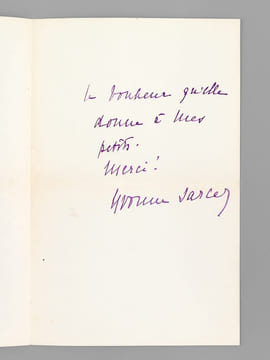 le bonheur qu'elle
donne à mes
petits.
Merci!
Yvonne Sarcey